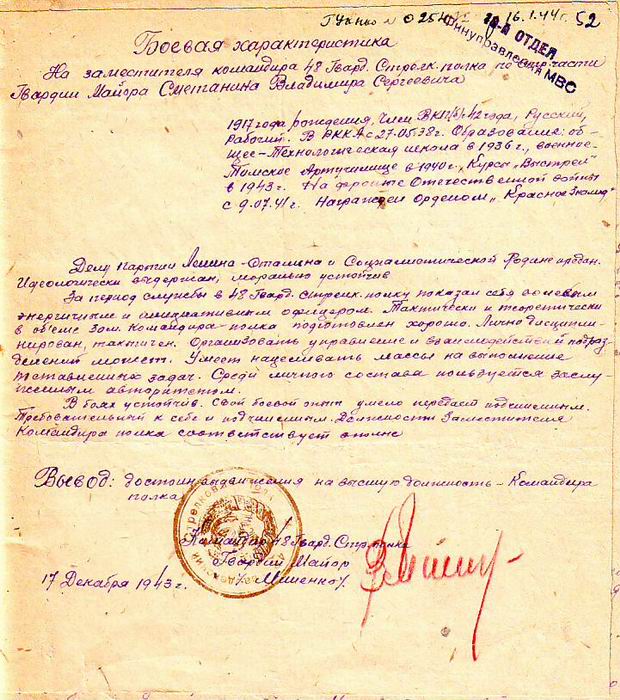 16.1.44г. 52
10-й ОТДЕЛ
Финуправления МВС
Боевая характеристика
На заместителя командира 48 Гвард. Стрелк. полка по стр. части
Гвардии Майора Сметанина Владимира Сергеевича
1917 года рождения, Член ВКП(б) с 42 года, Русский,
Рабочий. В РККА с 27.05.38г. Образование: об-
щее - Технологическая школа в 1936г., военное -
Томское Артучилище в 1940г., Курсы „Выстрел"
в 1943г. На фронте Отечественной войны
с 9.07.41г. Награжден Орденом „Красное Знамя"
Делу Партии Ленина - Сталина и Социалистической Родине предан.
Идеологически выдержан, морально устойчив
За период службы в 48 Гвард. Стрелк. полку показал себя волевым
энергичным и инициативным офицером. Тактически и теоретически
в объеме Зам. Командира полка подготовлен хорошо. Лично дисципли-
нирован, тактичен. Организовать управление и взаимодействие подраз-
делений может. Умеет нацеливать массы на выполнение
поставленных задач. Среди личного состава пользуется заслу-
женным авторитетом.
В боях устойчив. Свой боевой опыт умело передает подчиненным.
Требовательный к себе и подчиненным. Должности Заместителя
Командира полка соответствует вполне
Вывод: достоин выдвижения на высшую должность - Командира
полка
Командир 48 Гвард. Стр. полка
Гвардии Майор
/Мищенко/
17 Декабря 1943г.